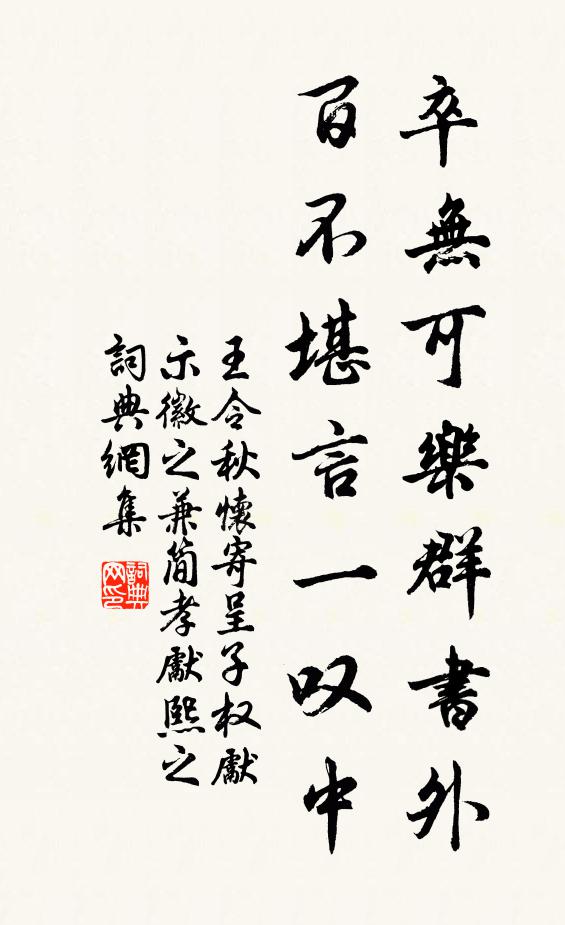 卒無可樂群書外
百不堪言一叹中
王令秋懷寄呈子权獻
示徽之兼简孝獻熙之
詞典網集
詞典网印